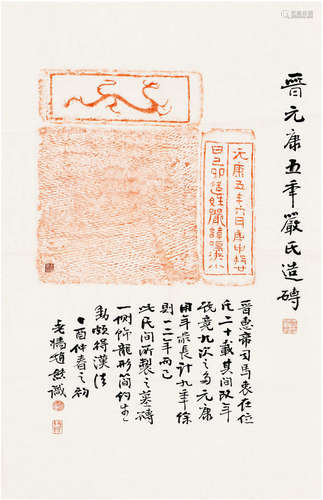 晉元康五年嚴氏造磚
元康五年六月庚申朔廿
日己卯造姓嚴諱
晉惠帝司馬衷在位
凡二十載其間改年
號竟九次之多元康
用年最長計九年餘
則一二年而已
此民間所製之墓磚
一側飾龍形簡約生
動頗得漢法
乙酉仲春之初
趙 識